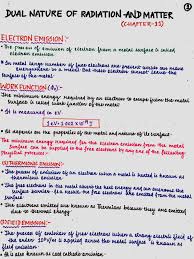 DUAL NATURE OF RADIATION AND MATTER
(CHAPTER-11)
ELECTRON EMISSION:-
• The process of emission of electron from a metal surface is called
electron emission.
• In metal large number of free electrons are present inside are move
but these electron cannot leave the
surface of the metal
WORK FUNCTION (Φ₀):-
The minimum energy required by an electron to escape from the metal
surface is called work function of metal
• It is measured in eV
1eV = 1.602 X 10⁻¹⁹ J
• It depends on the properties of the metal and nature of its surface.
The minimum energy required for the electron emission from the metal
surface can be supplied to the free electrons by any one of the following
physical process:-
(i) THERMIONIC EMISSION:-
• The process of emission of an electron when a metal is heated is known
as thermionic emission.
• The free electron in the metal absorb the heat energy and can overcome
the surface
of metal.
• The emitted electron are known as Thermions because they are emitted
due to thermal energy
(ii) FIELD EMISSION:-
• The process of emission of free electron when a strong electric field
is applied across the metal surface is known as
field emission